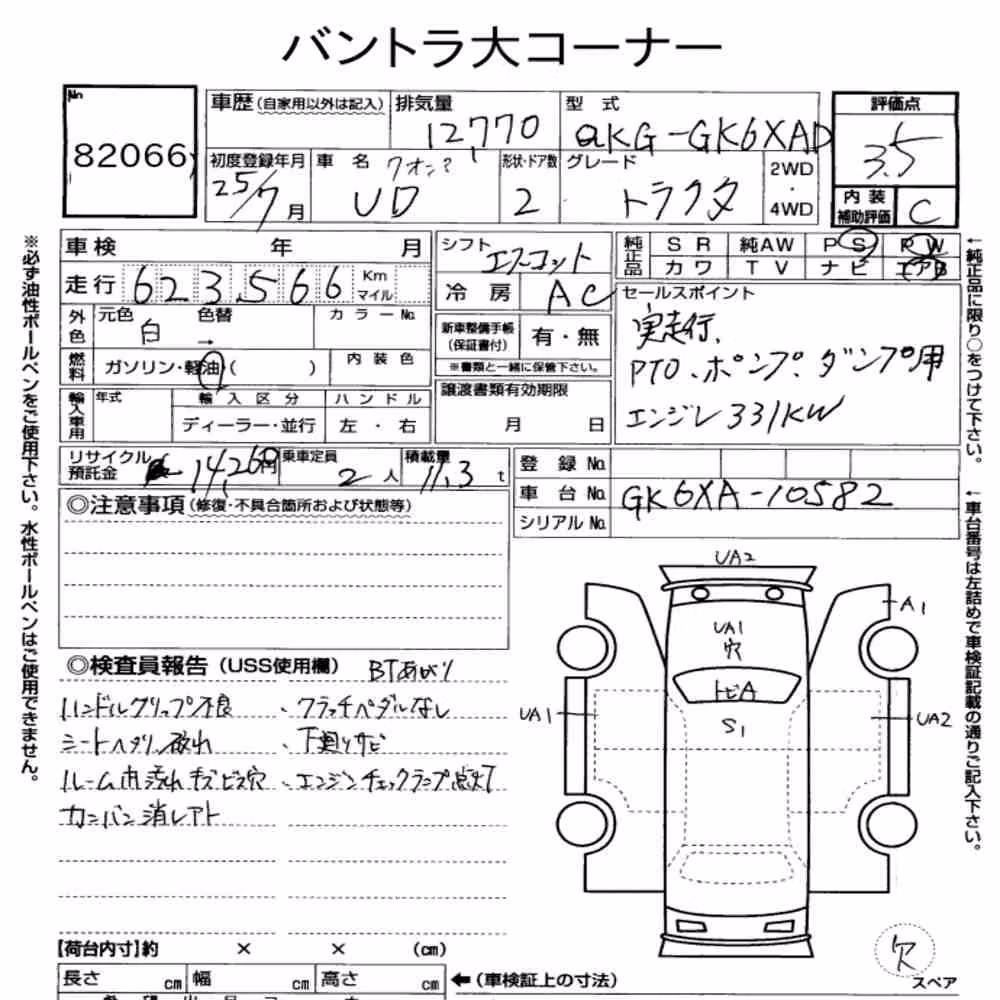 バントラ大コーナー
No
82066
車歴 (自家用以外は記入)
排気量
12,770
型 式
QKG-GK6XAD
評価点
3.5
初度登録年月
25/7月
車 名 クオン?
UD
形状・ドア数
2
グレード
トラクタ
2WD
・
4WD
内 装
補助評価
C
車検 年 月
走行 623,566 Km
マイル
外色
元色
白
色替
→
カラーNo.
燃料
ガソリン・軽油( )
内 装 色
輸入車用
年式
輸 入 区 分
ディーラー・並行
ハ ン ド ル
左 ・ 右
シフト
エスコット
冷 房
AC
新車整備手帳
(保証書付)
有・無
※書類と一緒に保管下さい。
譲渡書類有効期限
月 日
純正品
S R
純AW
P S
P W
カ ワ
T V
ナ ビ
エアB
セールスポイント
実走行、
PTO、ポンプ、ダンプ用
エンジン331KW
リサイクル
預託金
14,260円
乗車定員
2人
積載量
11.3 t
登 録 No.
車 台 No.
GK6XA-10582
シリアル No.
◎注意事項 (修復・不具合箇所および状態等)
◎検査員報告 (USS使用欄) BTあがり
ハンドルグリップ不良 、クラッチペダルなし
シートヘタリ、破れ 、下廻りサビ
ルーム内汚れキズビス穴 、エンジンチェックランプ点灯
カンバン消しアト
UA2
A1
UA1
穴
トビA
S1
UA1
UA2
欠
スペア
【荷台内寸】約 × × (cm)
長さ cm
幅 cm
高さ cm
←(車検証上の寸法)
※必ず油性ボールペンをご使用下さい。水性ボールペンはご使用できません。
←純正品に限り○をつけて下さい。
←車台番号は左詰めで車検証記載の通りご記入下さい。